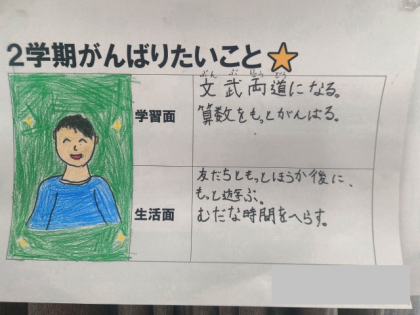 2学期がんばりたいこと
学習面
ぶん ぶ りょう どう
文武両道になる。
算数をもっとがんばる。
生活面
友だちともっとほうか後に、
もっと遊ぶ。
むだな時間をへらす。